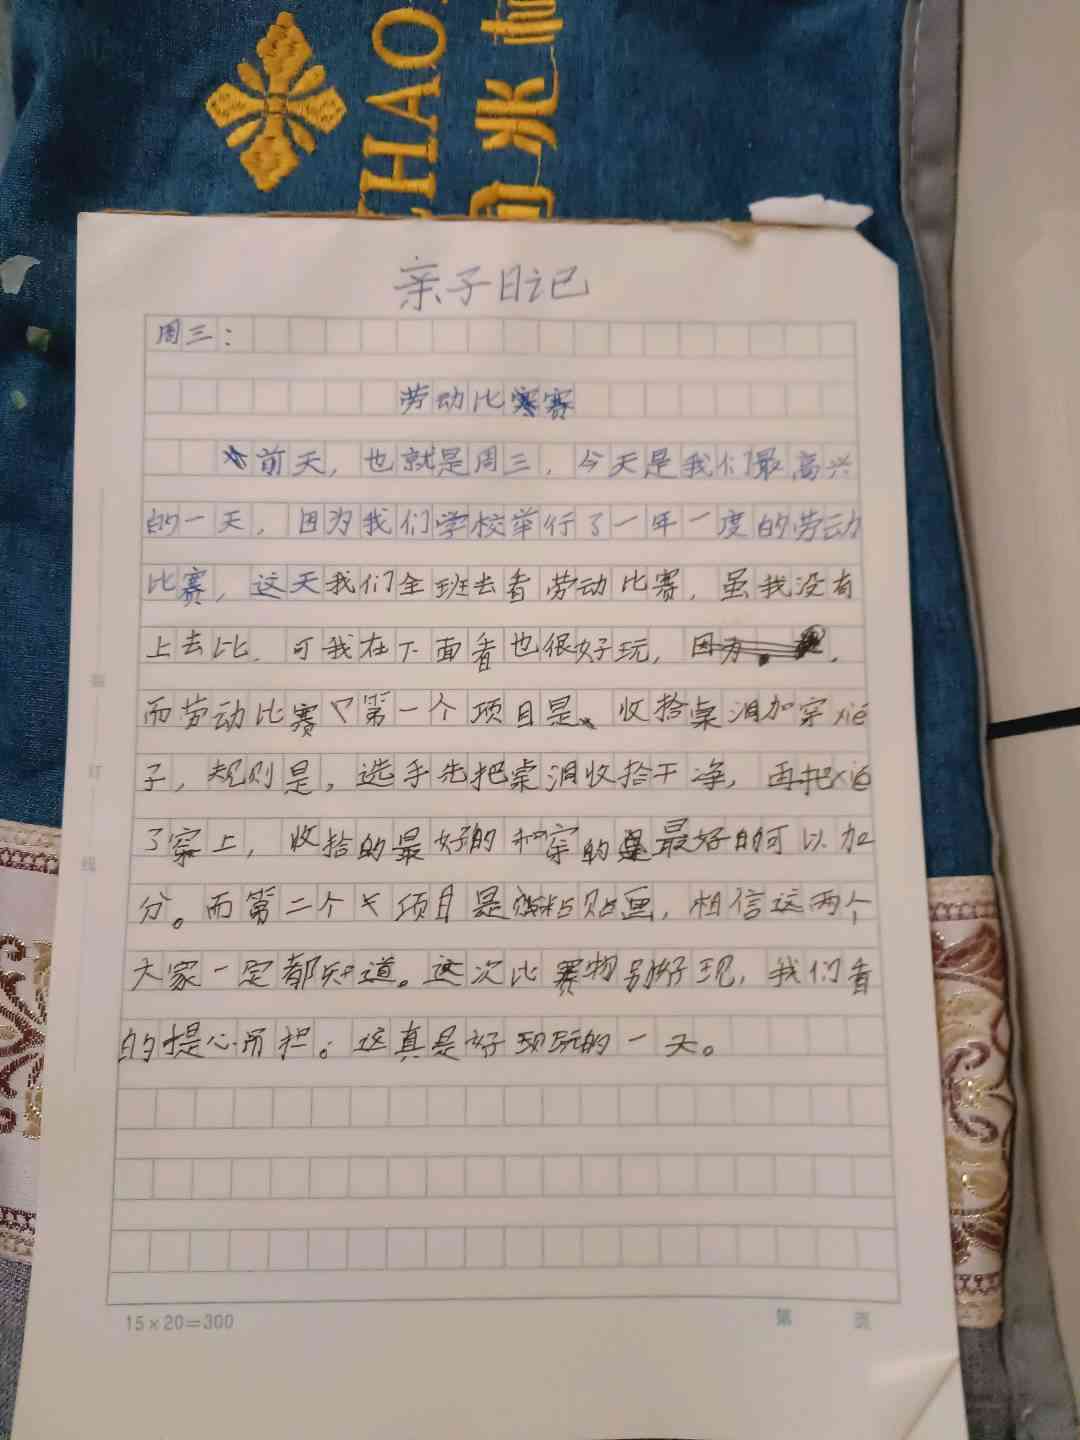 亲子日记
周三：
劳动比赛
前天，也就是周三，今天是我们最高兴
的一天，因为我们学校举行了一年一度的劳动
比赛，这天我们全班去看劳动比赛，虽我没有
上去比，可我在下面看也很好玩，
而劳动比赛第一个项目是、收拾桌洞加穿xié
子，规则是，选手先把桌洞收拾干净，再把xié
子穿上，收拾的最好的和穿的最好的可以加
分。而第二个项目是粘贴画，相信这两个
大家一定都知道。这次比赛特别好玩，我们看
的提心吊担。这真是好玩的一天。
15×20=300
第 页
装
订
线
CHAO